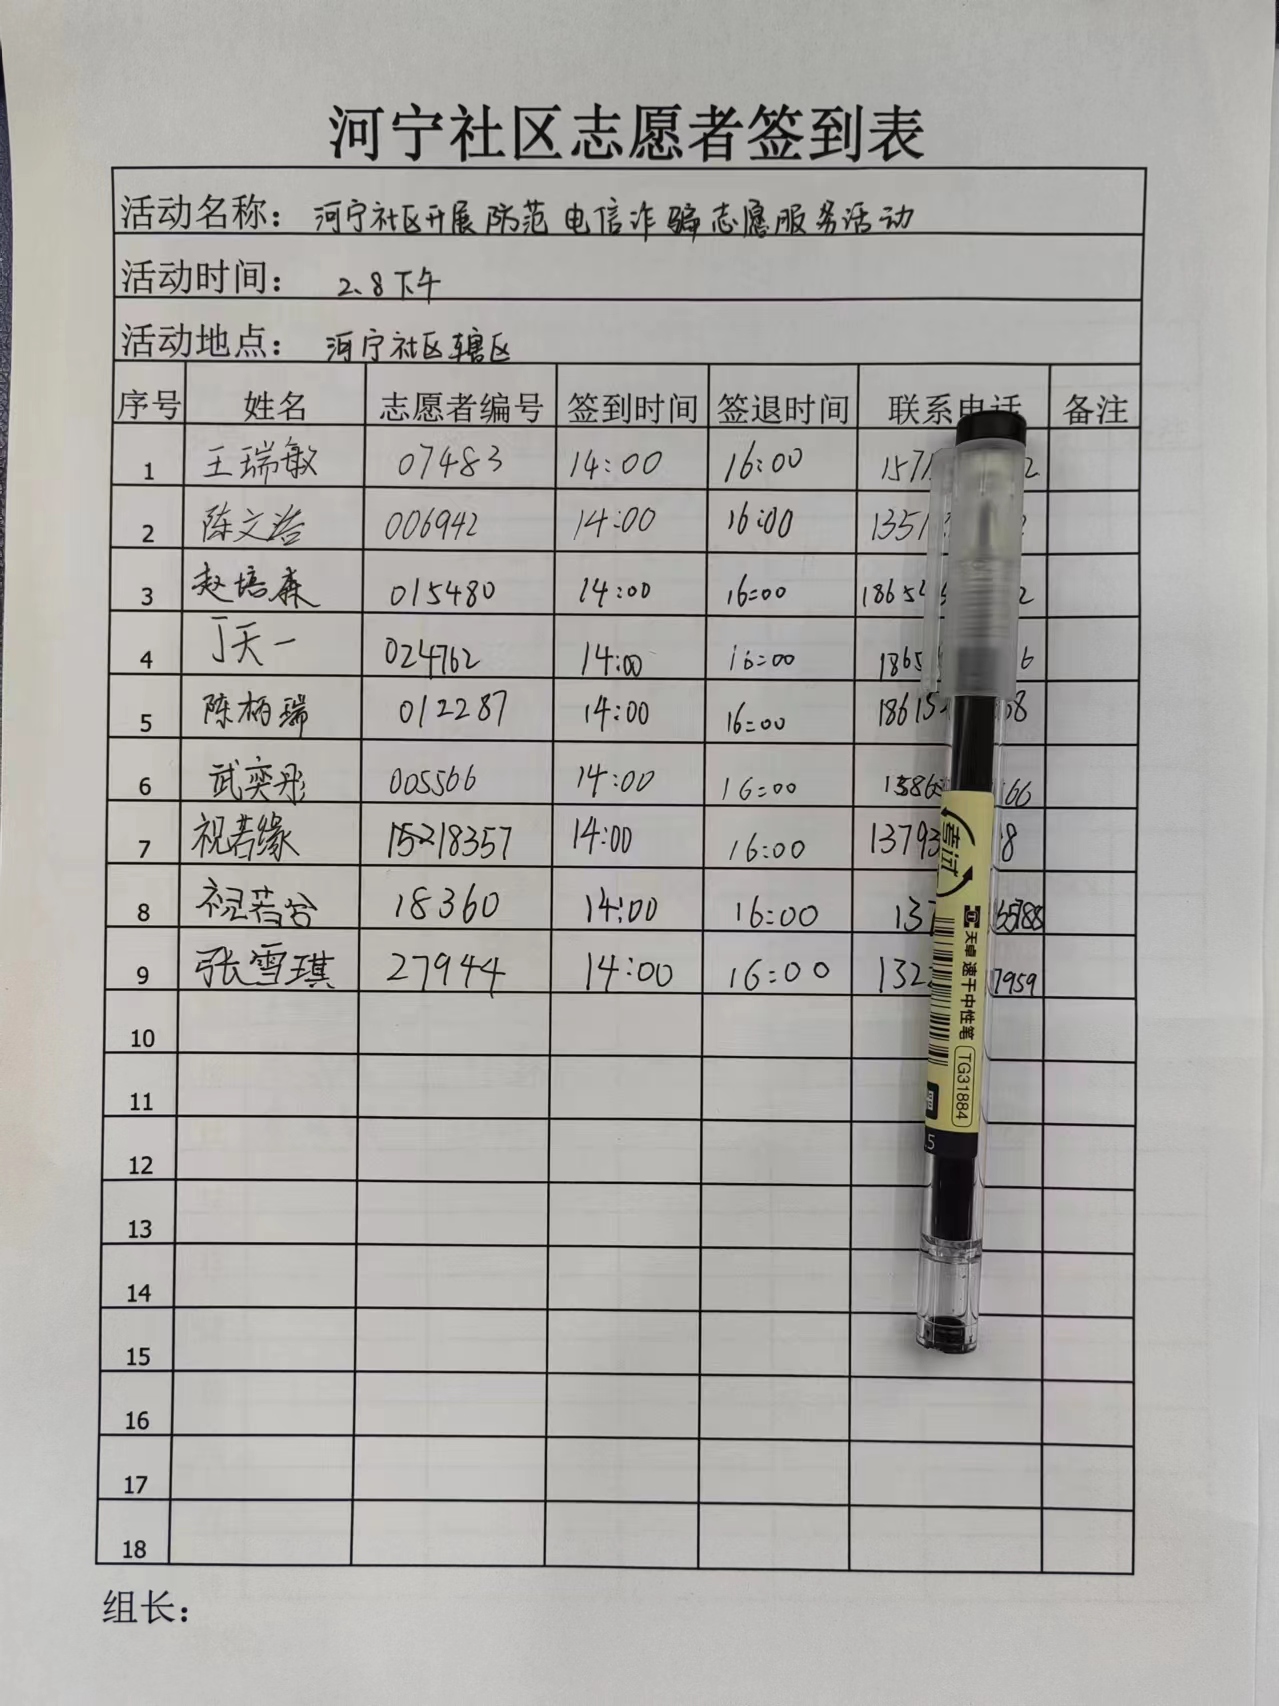 河宁社区志愿者签到表
活动名称： 河宁社区开展防范电信诈骗志愿服务活动
活动时间： 2.8下午
活动地点： 河宁社区辖区
序号 姓名 志愿者编号 签到时间 签退时间 联系电话 备注
1 王瑞敏 07483 14:00 16:00 1571 2
2 陈文浩 006942 14:00 16:00 1351
3 赵培森 015480 14:00 16:00 1865 2
4 丁天一 024762 14:00 16:00 1865 6
5 陈柄瑞 012287 14:00 16:00 18615 68
6 武奕彤 005566 14:00 16:00 1586 166
7 祝若缘 15218357 14:00 16:00 13793 8
8 祝若谷 18360 14:00 16:00 137 55788
9 张雪琪 27944 14:00 16:00 132 7959
10
11
12
13
14
15
16
17
18
组长：
考试
天卓 速干中性笔 TG31884